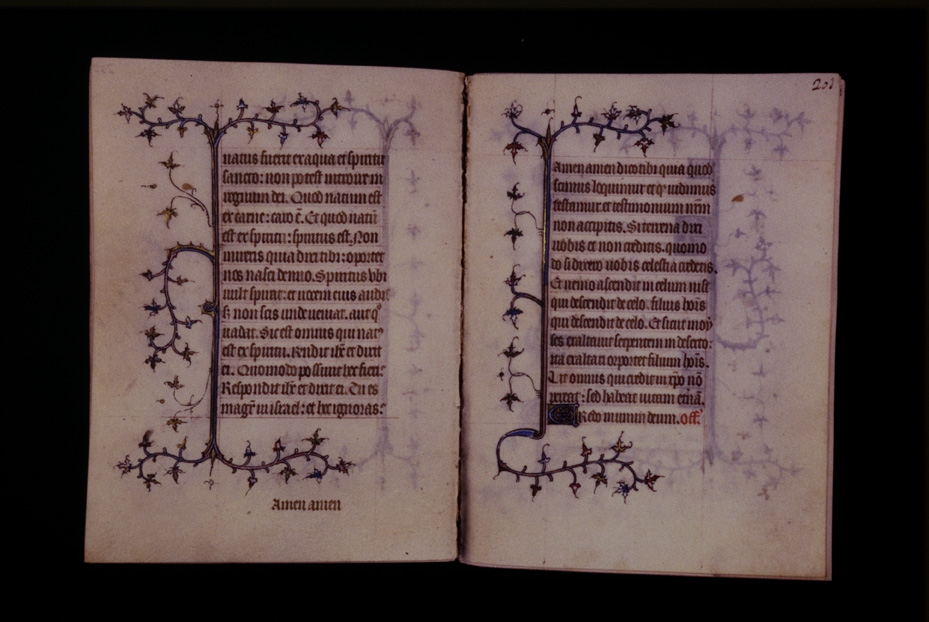 natus fuerit ex aqua et spiritu
sancto: non potest introire in
regnum dei. Quod natum est
ex carne: caro ē. Et quod natū
est ex spiritu: spiritus est. Non
mireris quia dixi tibi: oportet
nos nasci denuo. Spiritus vbi
uult spirat: et uocem eius audis
s; non scis unde ueniat. aut q°
uadat. Sic est omnis qui nat'
est ex spiritu. Rndit
et dixit
ei. Quomodo possunt hec fieri:
Respondit ihc et dixit ei. Tu es
mag̃r in israel: et hec ignoras:
Amen amen
201
Amen amen dico tibi quia quod
scimus loquimur et q' uidimus
testamur et testimonium nr̃m
non accipitis. Si terrena dixi
uobis et non creditis. quomo
do si dixero uobis celestia credetis.
Et nemo ascendit in celum nisi
qui descendit de celo. filius hoīs
qui descendit de celo. Et sicut moy
ses exaltauit serpentem in deserto:
ita exaltari oportet filium hoīs.
Vt omnis qui credit in xp̄o nō
pereat: sed habeat uitam et̄nā.
Credo in unum deum. off'.